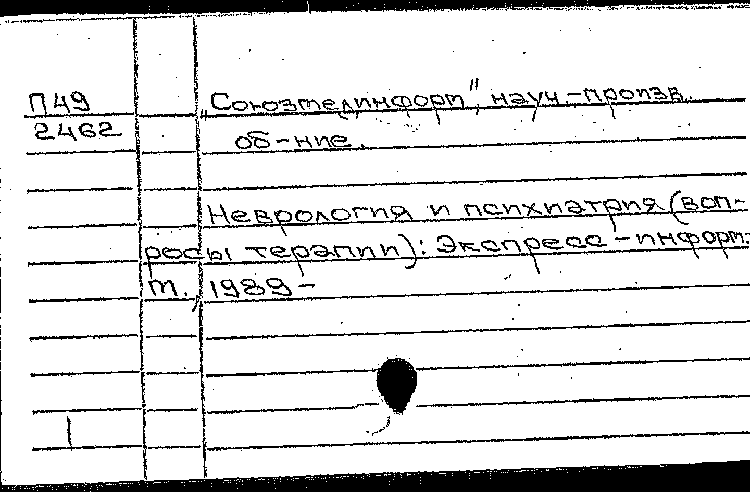 П49
2462
„Союзмединформ", науч.-произв.
об-ние.
Неврология и психиатрия (воп-
росы терапии): Экспресс-информ.
М., 1989-